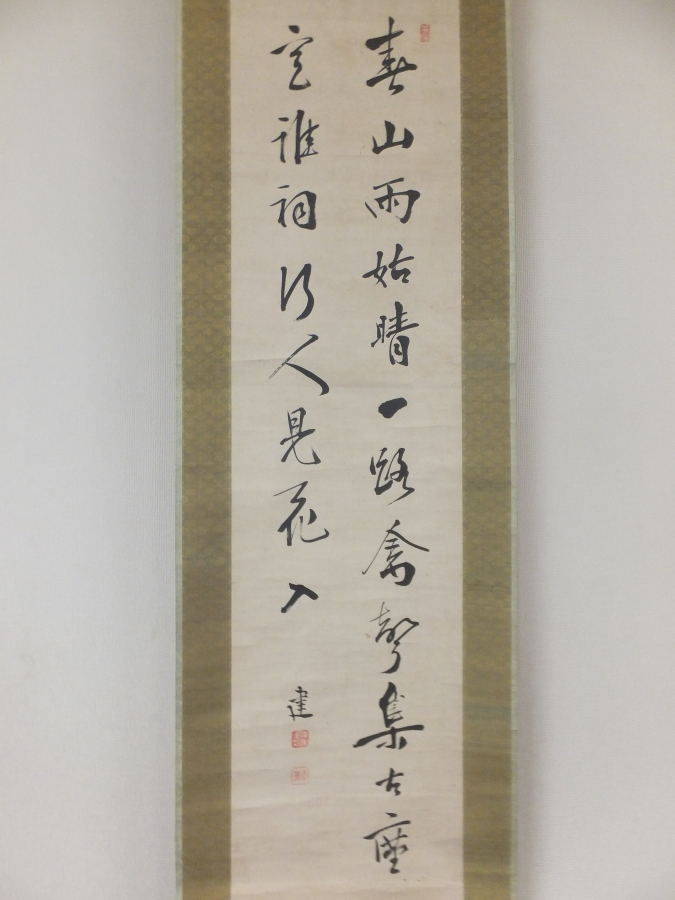 春山雨始晴一路禽聲集古座
定誰祠行人見花入
建